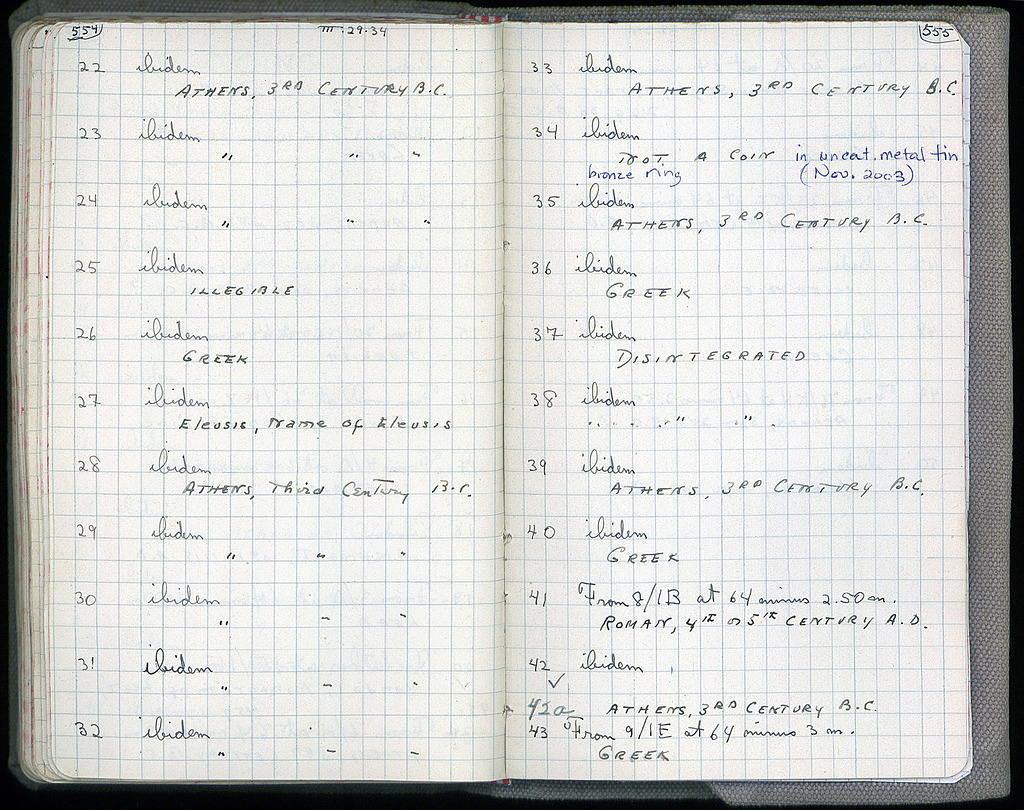 554
III·29·34
22 ibidem
ATHENS, 3RD CENTURY B.C.
23 ibidem
" " "
24 ibidem
" " "
25 ibidem
ILLEGIBLE
26 ibidem
GREEK
27 ibidem
Eleusis, Name of Eleusis
28 ibidem
ATHENS, Third Century B.C.
29 ibidem
" " "
30 ibidem
" – "
31 ibidem
" – "
32 ibidem
" – –
555
33 ibidem
ATHENS, 3RD CENTURY B.C.
34 ibidem
NOT A COIN in uncat. metal tin
bronze ring (Nov. 2003)
35 ibidem
ATHENS, 3RD CENTURY B.C.
36 ibidem
GREEK
37 ibidem
DISINTEGRATED
38 ibidem
" "
39 ibidem
ATHENS, 3RD CENTURY B.C.
40 ibidem
GREEK
41 From 8/IB at 64 minus 2.50 m.
ROMAN, 4TH or 5TH CENTURY A.D.
42 ibidem
✓
42a ATHENS, 3RD CENTURY B.C.
43 From 9/IE at 64 minus 3 m.
GREEK